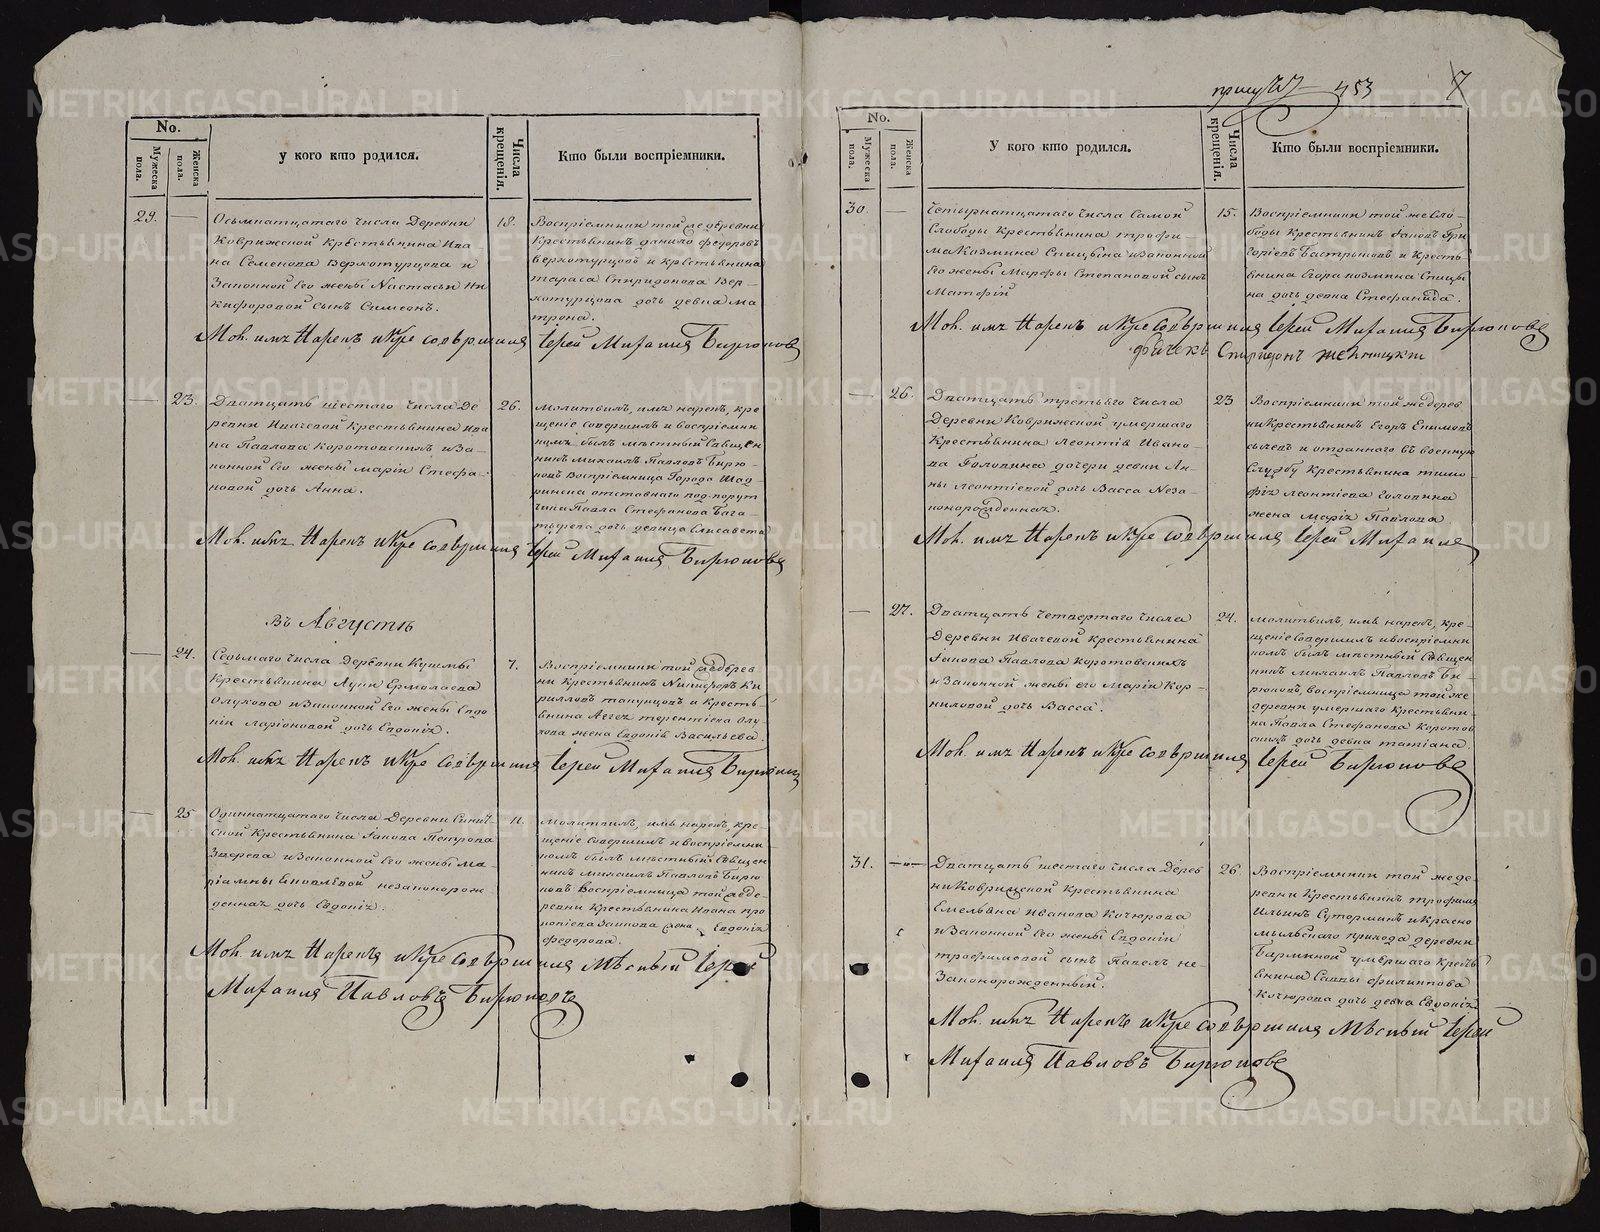 No.
Мужеска пола.
Женска пола.
у кого кто родился.
Числа крещенія.
Кто были воспріемники.
29. — Осьмнатцатаго числа Деревни
Коврижской крестьянина Ива
на Семенова Верхотурцова и
Законной его жены Настасьи Ни
кифоровой сынъ Симеонъ.
18. Воспріемники той же деревни
крестьянинъ Данило Федоровъ
Верхотурцовъ и крестьянина
Тараса Спиридонова Вер-
хотурцова дочь девка Ма
трона.
Мол. имя Нарекъ и Кре совершилъ Іерей Михаилъ Бирюковъ
— 23. Дватцать шестаго числа Де
ревни Ивачевой крестьянина Ива
на Павлова Коротовскихъ и За-
конной его жены Маріи Стефа-
новой дочь Анна.
26. Молитвилъ, имя нарекъ, кре
щеніе совершилъ и воспріемни
комъ былъ мѣстный Священ
никъ Михаилъ Павловъ Бирю-
ковъ Воспріемница Города Шад-
ринска отставнаго под-порут
чика Павла Стефанова Бага-
дочь девица Елисавета
Мол. имя Нарекъ и Кре совершилъ Іерей Михаилъ Бирюковъ
Въ Августѣ
— 24. Седьмаго числа Деревни
Крестьянина Луки Ермолаева
и Законной его жены Евдо-
кіи Ларіоновой дочь Евдокія.
7. Воспріемники той же дерев
ни крестьянинъ Никифоръ Ки
рилловъ и кресть-
янина Терентіева
жена Евдокія Васильева.
Мол. имя Нарекъ и Кре совершилъ Іерей Михаилъ Бирюковъ
— 25 Одиннатцатаго числа Деревни
Крестьянина Іакова Петрова
Зверева и Законной его жены Ма-
ріамны Яковлевой незаконорож-
денная дочь Евдокія.
11. Молитвилъ, имя нарекъ, кре-
щеніе совершилъ и воспріемни
комъ былъ мѣстный Священ
никъ Михаилъ Павловъ Бирю
ковъ Воспріемница той же де-
ревни крестьянина Ивана Про
копіева жена Евдокія
Федорова.
Мол. имя Нарекъ и Кре совершилъ Мѣстный Іерей
Михаилъ Павловъ Бирюковъ
453 7
No.
Мужеска пола.
Женска пола.
У кого кто родился.
Числа крещенія.
Кто были воспріемники.
30. — Четырнатцатаго числа Самой
Слободы крестьянина Трофи-
ма Козмина Спицына и Законной
его жены Марфы Степановой сынъ
Матфій
15. Воспріемники той же Сло-
боды крестьянинъ Іаковъ Гри
горіевъ и кресть
янина Егора Козмина Спицы
на дочь девка Стефанида.
Мол. имя Нарекъ и Кре совершилъ Іерей Михаилъ Бирюковъ
Спиридонъ
— 26. Дватцать третьяго числа
Деревни Коврижской умершаго
Крестьянина Леонтія Ивано-
ва Головина дочери девки Ан-
ны Леонтіевой дочь Васса Неза-
конорожденная.
23 Воспріемники той же дерев
ни Крестьянинъ Егоръ Екимовъ
и отданнаго въ военную
службу крестьянина Тимо-
фея Леонтіева Головина
жена Марія Павлова
Мол. имя Нарекъ и Кре совершилъ Іерей Михаилъ
— 27. Дватцать четвертаго числа
Деревни Ивачевой крестьянина
Іакова Павлова Коротовскихъ
и Законной жены его Маріи Кор-
ниловой дочь Васса.
24. Молитвилъ, имя нарекъ, кре-
щеніе совершилъ и воспріемни
комъ былъ мѣстный Священ
никъ Михаилъ Павловъ Би-
рюковъ, воспріемница той же
деревни умершаго крестьяни-
на Павла Стефанова Коротов
скихъ дочь девка Татіана.
Мол. имя Нарекъ и Кре совершилъ Іерей Бирюковъ
31. — Дватцать шестаго числа Дерев
ни Коврижской Крестьянина
Емельяна Иванова Кочюрова
и Законной его жены Евдокіи
Трофимовой сынъ Павелъ не-
Законорожденный.
26 Воспріемники той же де-
ревни Крестьянинъ Трофимъ
Ильинъ Сутормин и Красно
мыльскаго прихода деревни
умершаго кресть
янина Саввы Филиппова
Кочюрова дочь девка Евдокія
Мол. имя Нарекъ и Кре совершилъ Мѣстный Іерей
Михаилъ Павловъ Бирюковъ
METRIKI.GASO-URAL.RU